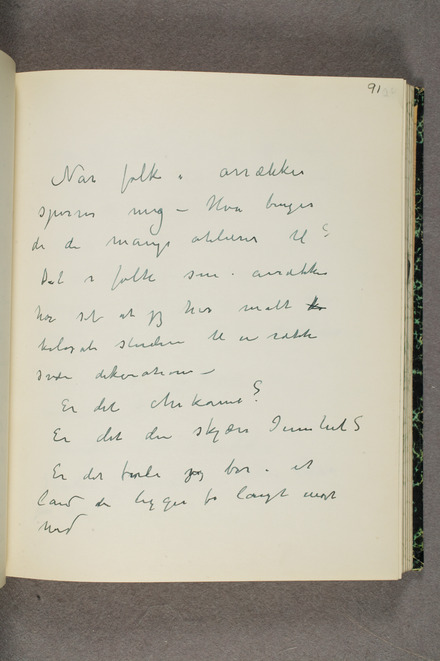 91
Når folk i årrækker
spørrer mig – Hva bruges
de de mange atelierer til?
Det er folk som i årrækker
har set at jeg har malt
kolosale studier til en række
svære dekorationer –
Er det chikane?
Er det den skjære Dumhet?
Er det fordi jeg bor i et
land der ligger for langt mot
Nord